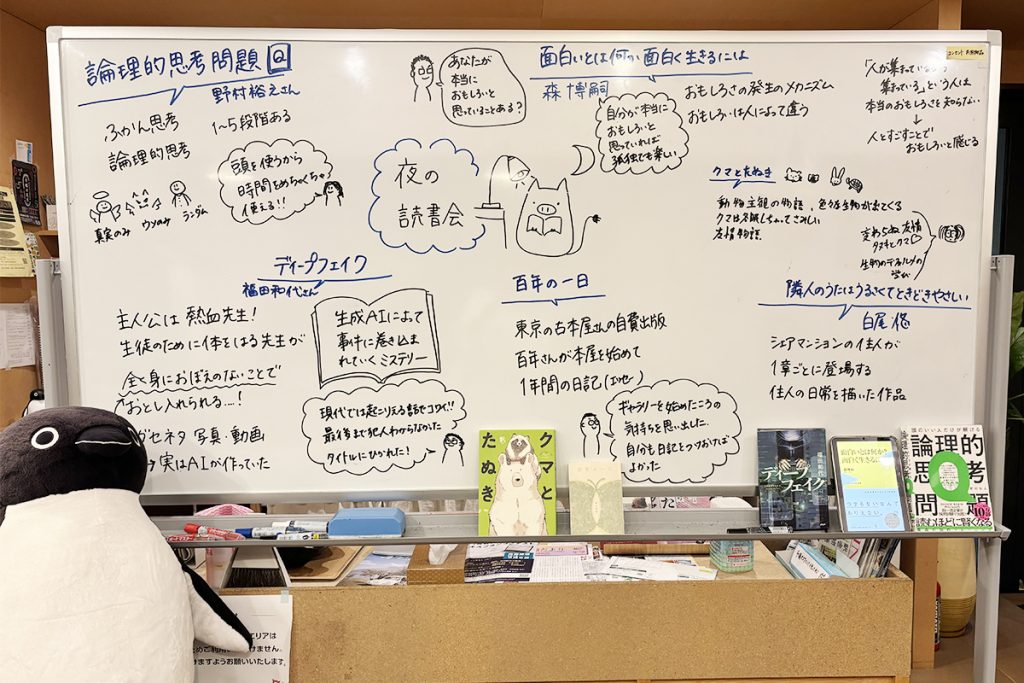 論理的思考問題
野村裕之さん
ふかん思考
論理的思考
1〜5段階ある
頭を使うから
時間をめちゃくちゃ
使える!!
真実のみ
ウソのみ
ランダム
あなたが
本当に
おもしろいと
思っていることある?
面白いとは何か 面白く生きるには
森 博嗣
自分が本当に
おもしろいと
思っていれば
孤独でも楽しい
おもしろさの発生のメカニズム
おもしろいは人によって違う
集まっている」という人は
本当のおもしろさを知らない
↓
人とすごすことで
おもしろいと感じる
夜の
読書会
クマとたぬき
動物主観の物語。色々な生物が出てくる
クマは冬眠しちゃってさみしい
友情物語
変わらぬ友情
タヌキとクマ♡
生物のディテールの
学び
ディープフェイク
福田和代さん
主人公は熱血先生!
生徒のために体をはる先生が
全く身におぼえのないことで
おとし入れられる…!
ガセネタ 写真・動画
実はAIが作っていた
生成AIによって
事件に巻き込ま
れていくミステリー
現代では起こりえる話でコワイ!!
最後まで犯人わからなかった
タイトルにひかれた!
百年の一日
東京の古本屋さんの自費出版
百年さんが本屋を始めて
1年間の日記(エッセー)
ギャラリーを始めたころの
気持ちを思い出した。
自分も日記とっておけば
よかった
隣人のうたはうるさくてときどきやさしい
白尾 悠
シェアマンションの住人が
1章ごとに登場する
住人の日常を描いた作品
クマと
たぬき
ディープ
フェイク
福田和代
面白いとは何か?
面白く生きるには?
つまらないなん
てありえない。
論理的
思考
問題
Q
読むほどに賢くなる
エリアは
きますようお願いいたします。